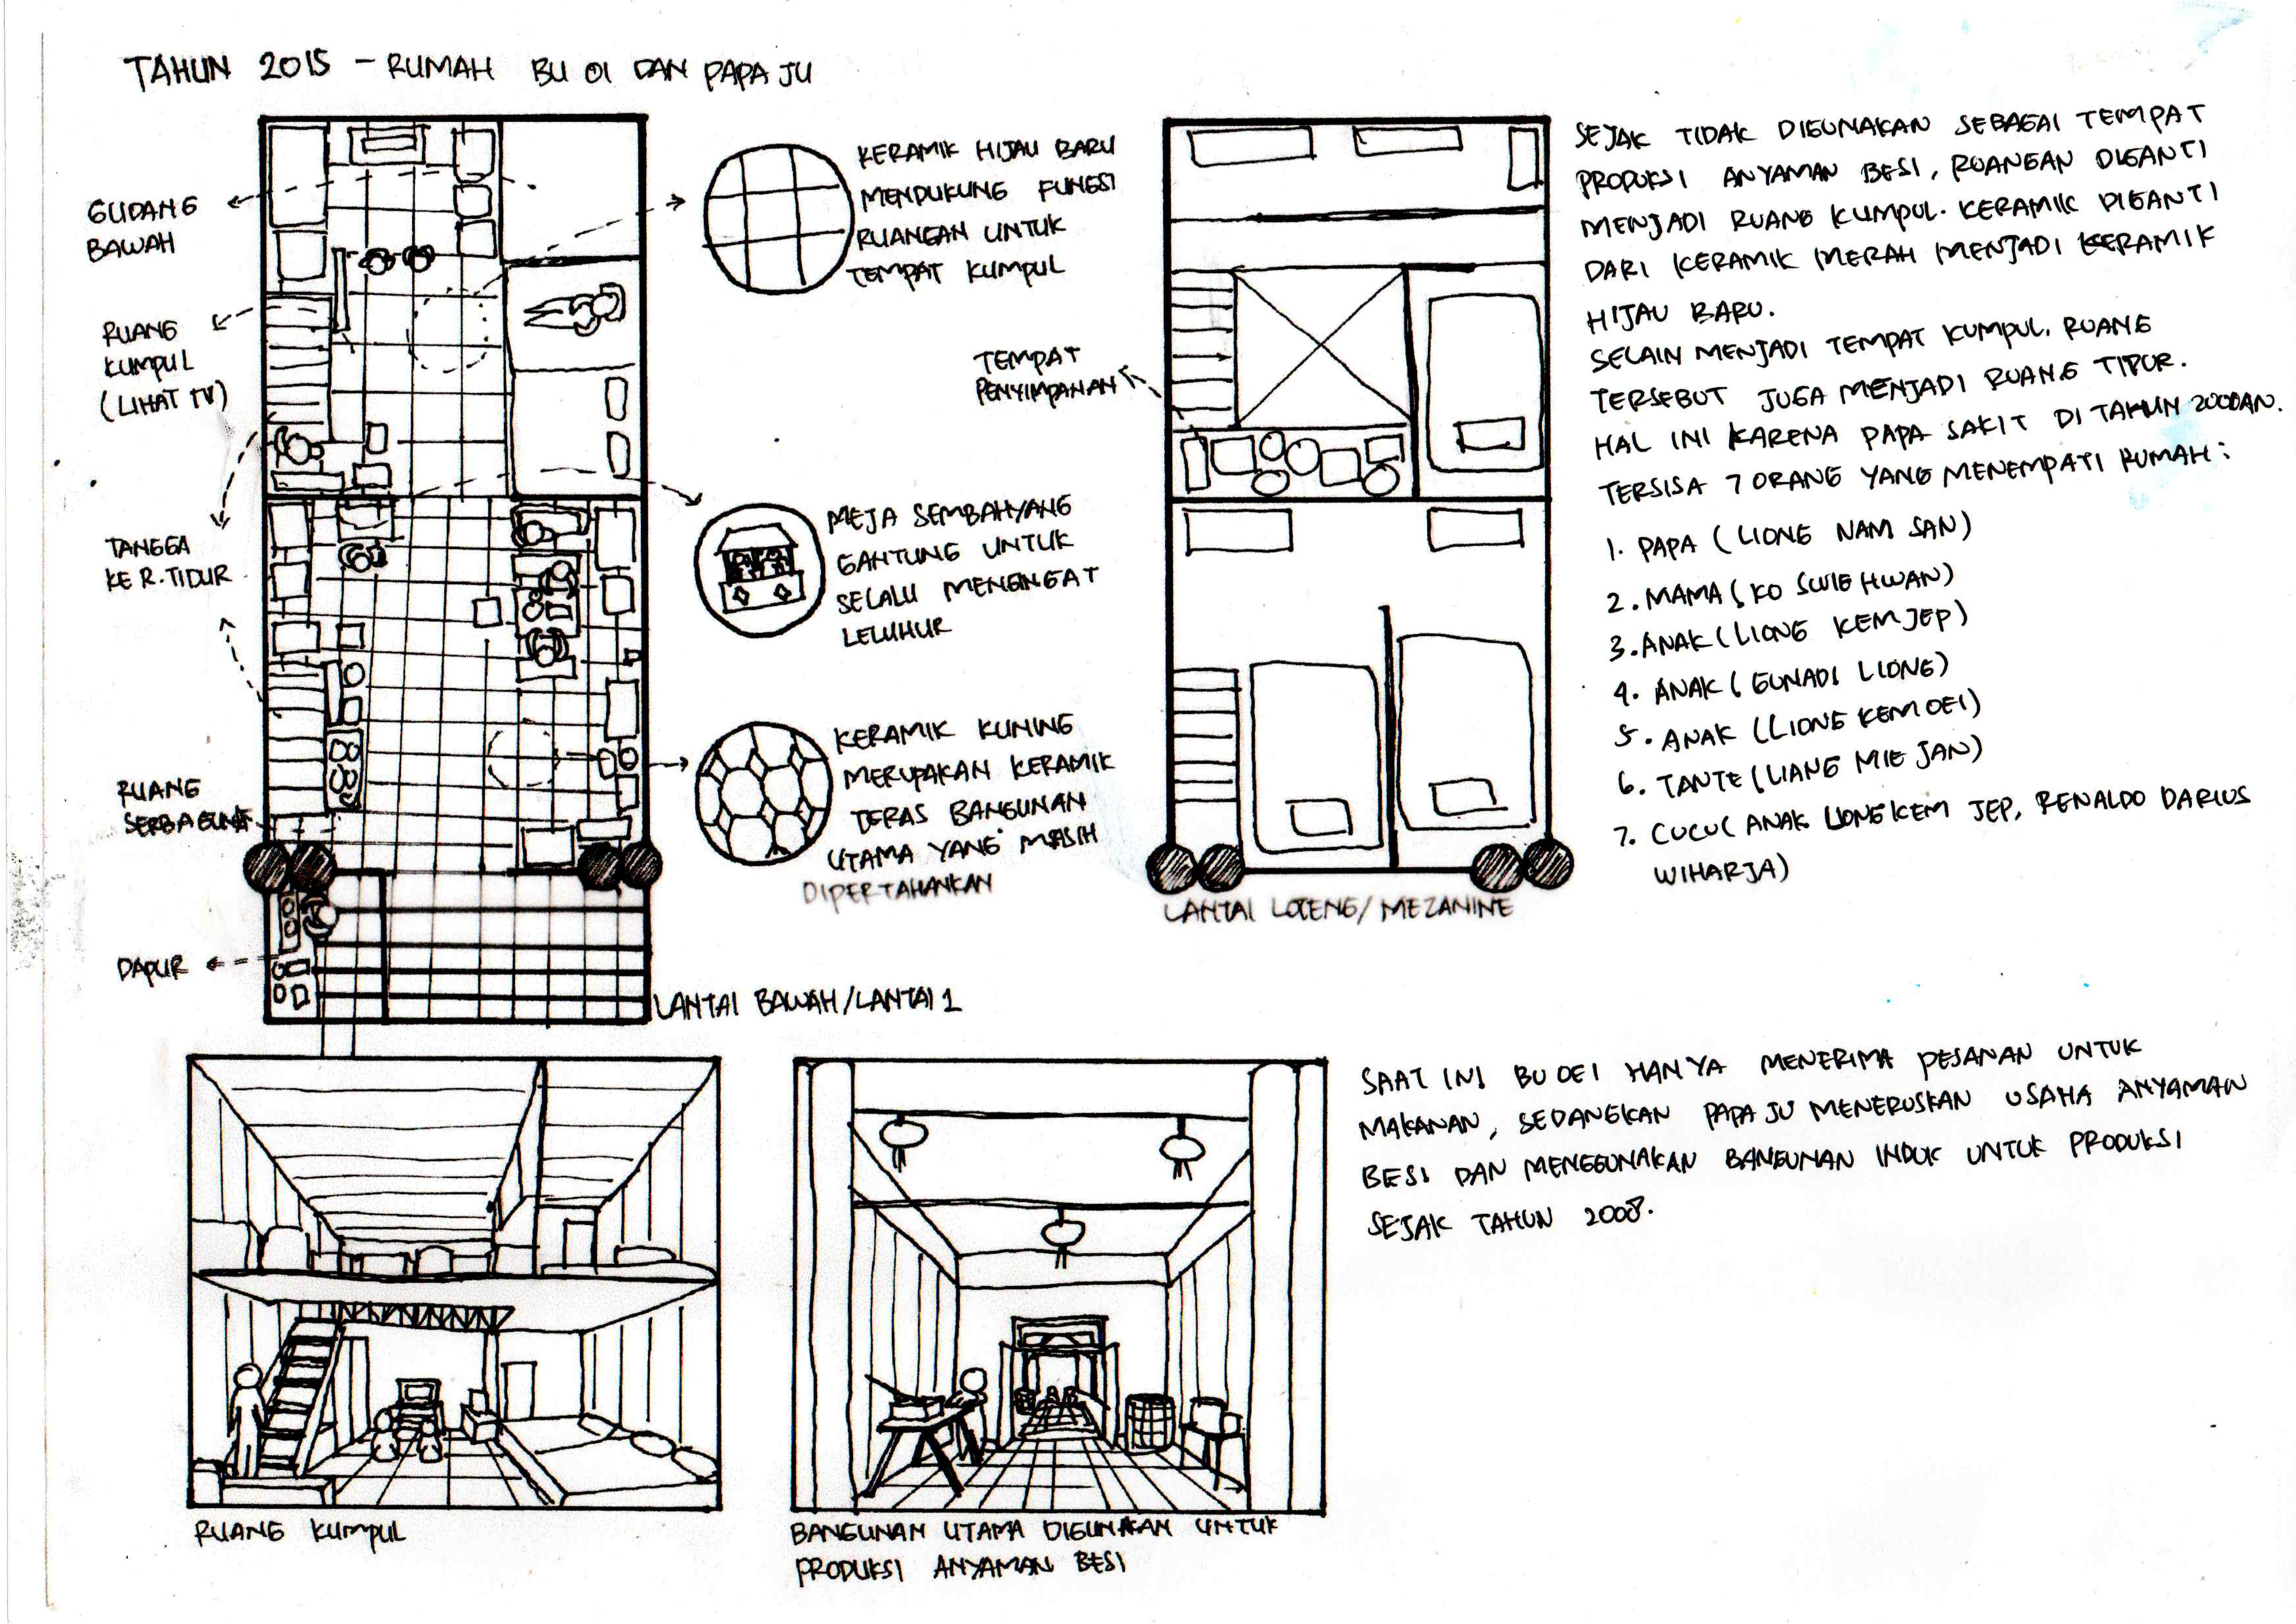 TAHUN 2015 - RUMAH BU OI DAN PAPA JU
GUDANG
BAWAH
RUANG
KUMPUL
(LIHAT TV)
TANGGA
KE R. TIDUR
RUANG
SERBAGUNA
DAPUR
KERAMIK HIJAU BARU
MENDUKUNG FUNGSI
RUANGAN UNTUK
TEMPAT KUMPUL
MEJA SEMBAHYANG
GANTUNG UNTUK
SELALU MENGINGAT
LELUHUR
KERAMIK KUNING
MERUPAKAN KERAMIK
TERAS BANGUNAN
UTAMA YANG MASIH
DIPERTAHANKAN
LANTAI BAWAH/LANTAI 1
TEMPAT
PENYIMPANAN
LANTAI LOTENG/MEZANINE
SEJAK TIDAK DIGUNAKAN SEBAGAI TEMPAT
PRODUKSI ANYAMAN BESI, RUANGAN DIGANTI
MENJADI RUANG KUMPUL. KERAMIK DIGANTI
DARI KERAMIK MERAH MENJADI KERAMIK
HIJAU BARU.
SELAIN MENJADI TEMPAT KUMPUL. RUANG
TERSEBUT JUGA MENJADI RUANG TIDUR.
HAL INI KARENA PAPA SAKIT DI TAHUN 2000AN.
TERSISA 7 ORANG YANG MENEMPATI RUMAH:
1. PAPA (LIONG NAM SAN)
2. MAMA (KO SWIE HWAN)
3. ANAK (LIONG KEM JEP)
4. ANAK (GUNADI LIONG)
5. ANAK (LIONG KEM OEI)
6. TANTE (LIANG MIE JAN)
7. CUCU (ANAK LIONG KEM JEP, RENALDO DARIUS
WIHARJA)
SAAT INI BU OEI HANYA MENERIMA PESANAN UNTUK
MAKANAN, SEDANGKAN PAPA JU MENERUSKAN USAHA ANYAMAN
BESI DAN MENGGUNAKAN BANGUNAN INDUK UNTUK PRODUKSI
SEJAK TAHUN 2008.
RUANG KUMPUL
BANGUNAN UTAMA DIGUNAKAN UNTUK
PRODUKSI ANYAMAN BESI